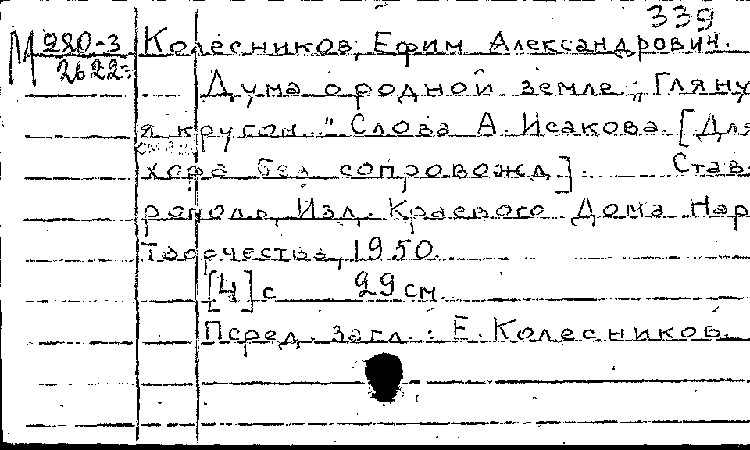 339
М 980-3 Колесников, Ефим Александрович.
2622 Дума о родной земле „Гляну
я кругом..." Слова А. Исакова. [Для
хора без сопровожд]. Став-
рополь, Изд. Краевого Дома Нар
Творчества, 1950.
[4] с 29 см.
Перед. загл.: Е. Колесников.